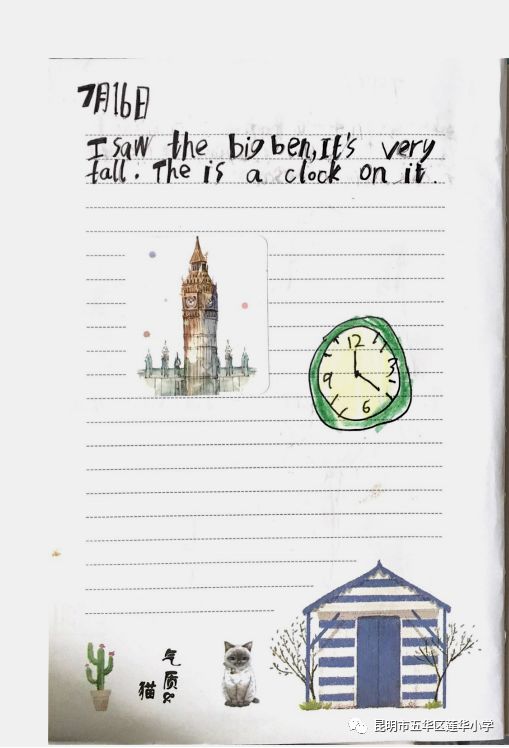 7月16日
I saw the big ben,It's very
tall. The is a clock on it.
12
3
9
6
气质
猫
昆明市五华区莲华小学